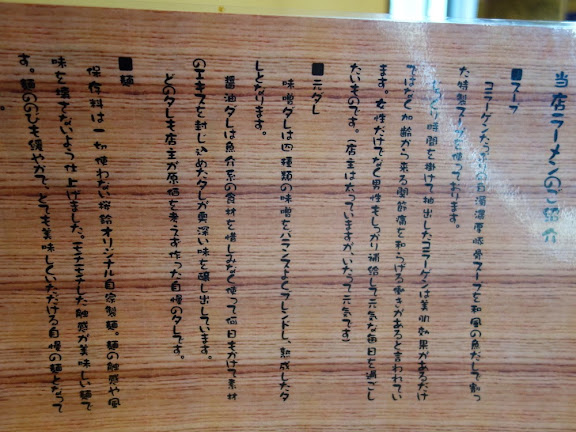 当店ラーメンのご紹介
■スープ
コラーゲンたっぷりの白濁濃厚豚骨スープを和風の魚だしで割っ
た特製スープを使っております。
じっくり時間を掛けて抽出したコラーゲンは美肌効果があるだけ
ではなく加齢から来る関節痛を和らげる働きがあると言われてい
ます。女性だけでなく男性もしっかり補給して元気な毎日を過ごし
たいものです。(店主は太っていますが、いたって元気です)
■元ダレ
味噌ダレは四種類の味噌をバランスよくブレンドし、熟成したタ
レとなります。
醤油ダレは魚介系の食材を惜しみなく使って何日もかけて素材
のエキスを封じ込めたタレが奥深い味を醸し出しています。
どのタレも店主が原価を考えず作った自慢のタレです。
■麺
保存料は一切使わない桜鈴オリジナル自家製麺。麺の触感や風
味を壊さないよう仕上げました。モチモチした触感が美味しい麺で
す。麺のひもも緩やかで、とても美味しくいただける自慢の麺となって